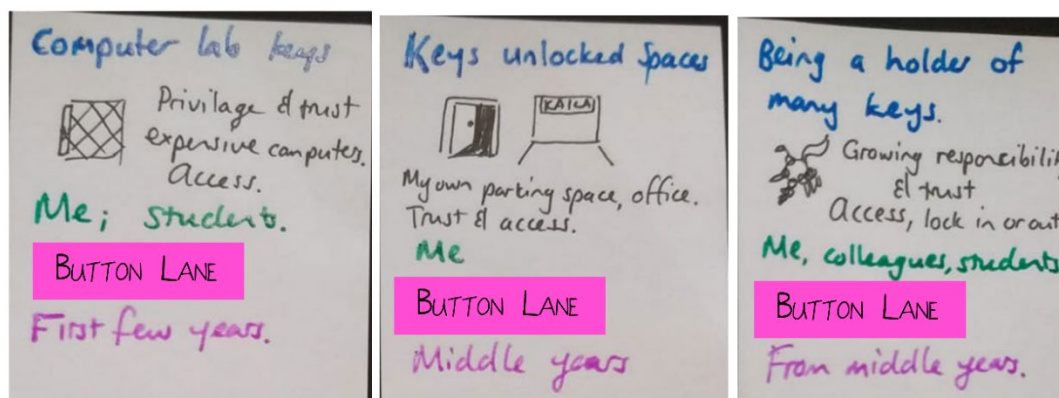 Computer lab keys
Privilage & trust
expensive computers.
Access.
Me; students.
BUTTON LANE
First few years.
Keys unlocked spaces
KAILA
My own parking space, office.
Trust & access.
Me
BUTTON LANE
Middle years
Being a holder of
many keys.
Growing responcibility
& trust
Access, lock in or out
Me, colleagues, students
BUTTON LANE
From middle years.